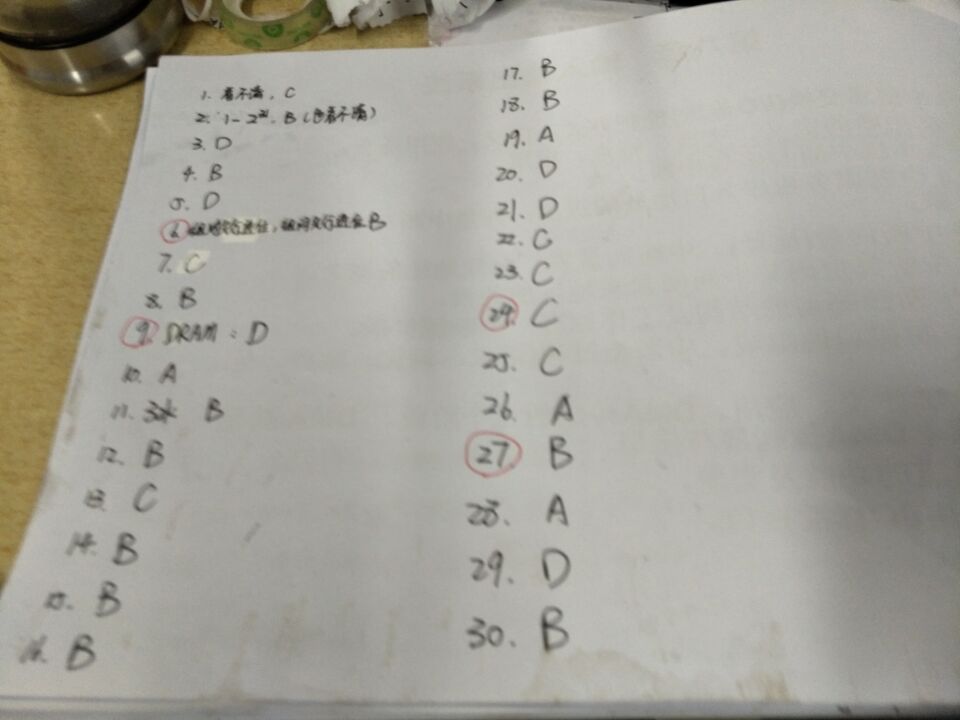 1. 看不清, C
2. 1-2^21. B (也看不清)
3. D
4. B
5. D
6. 组内并行进位, 组间并行进位 B
7. C
8. B
9. DRAM: D
10. A
11. B
12. B
13. C
14. B
15. B
16. B
17. B
18. B
19. A
20. D
21. D
22. C
23. C
24. C
25. C
26. A
27. B
28. A
29. D
30. B